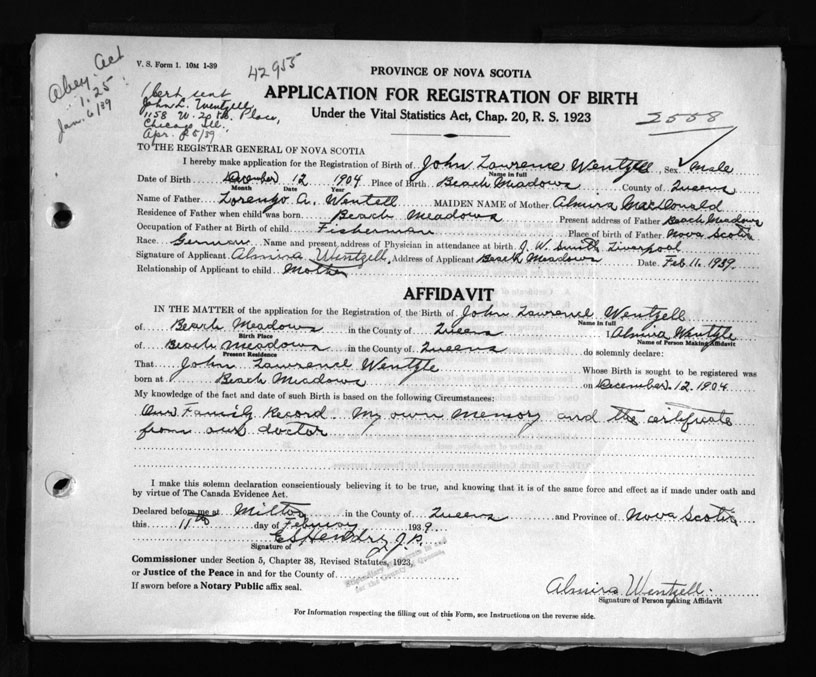 V. S. Form 1. 10M 1-39
42955
Abey. Act
1.25
Jan. 6/39
Cert sent
John L. Wentzell,
1158 W. 20th Place,
Chicago Ill.
Apr. 25/39
PROVINCE OF NOVA SCOTIA
APPLICATION FOR REGISTRATION OF BIRTH
Under the Vital Statistics Act, Chap. 20, R. S. 1923
2558
TO THE REGISTRAR GENERAL OF NOVA SCOTIA
I hereby make application for the Registration of Birth of John Lawrence Wentzell, Sex Male
Name in full
Date of Birth December 12 1904 Place of Birth Beach Meadows County of Queens
Month Date Year
Name of Father Lorenzo A. Wentzell MAIDEN NAME of Mother Almira MacDonald
Residence of Father when child was born Beach Meadows Present address of Father Beach Meadows
Occupation of Father at Birth of child Fisherman Place of birth of Father Nova Scotia
Race German Name and present address of Physician in attendance at birth J. W. Smith Liverpool
Signature of Applicant Almira Wentzell Address of Applicant Beach Meadows Date Feb 11. 1939.
Relationship of Applicant to child Mother
AFFIDAVIT
IN THE MATTER of the application for the Registration of the Birth of John Lawrence Wentzell
Name in full
of Beach Meadows in the County of Queens I Almira Wentzle
Birth Place Name of Person Making Affidavit
of Beach Meadows in the County of Queens do solemnly declare:
Present Residence
That John Lawrence Wentzle Whose Birth is sought to be registered was
born at Beach Meadows on December 12 1904
My knowledge of the fact and date of such Birth is based on the following Circumstances:
Our Family Record. My own Memory and the certificate
from our doctor
I make this solemn declaration conscientiously believing it to be true, and knowing that it is of the same force and effect as if made under oath and
by virtue of The Canada Evidence Act.
Declared before me at Milton in the County of Queens and Province of Nova Scotia
this 11th day of February 1939
E S Hendry J.P.
Signature of
Commissioner under Section 5, Chapter 38, Revised Statutes, 1923,
or Justice of the Peace in and for the County of
If sworn before a Notary Public affix seal.
Almira Wentzell
Signature of Person making Affidavit
For Information respecting the filling out of this Form, see Instructions on the reverse side.